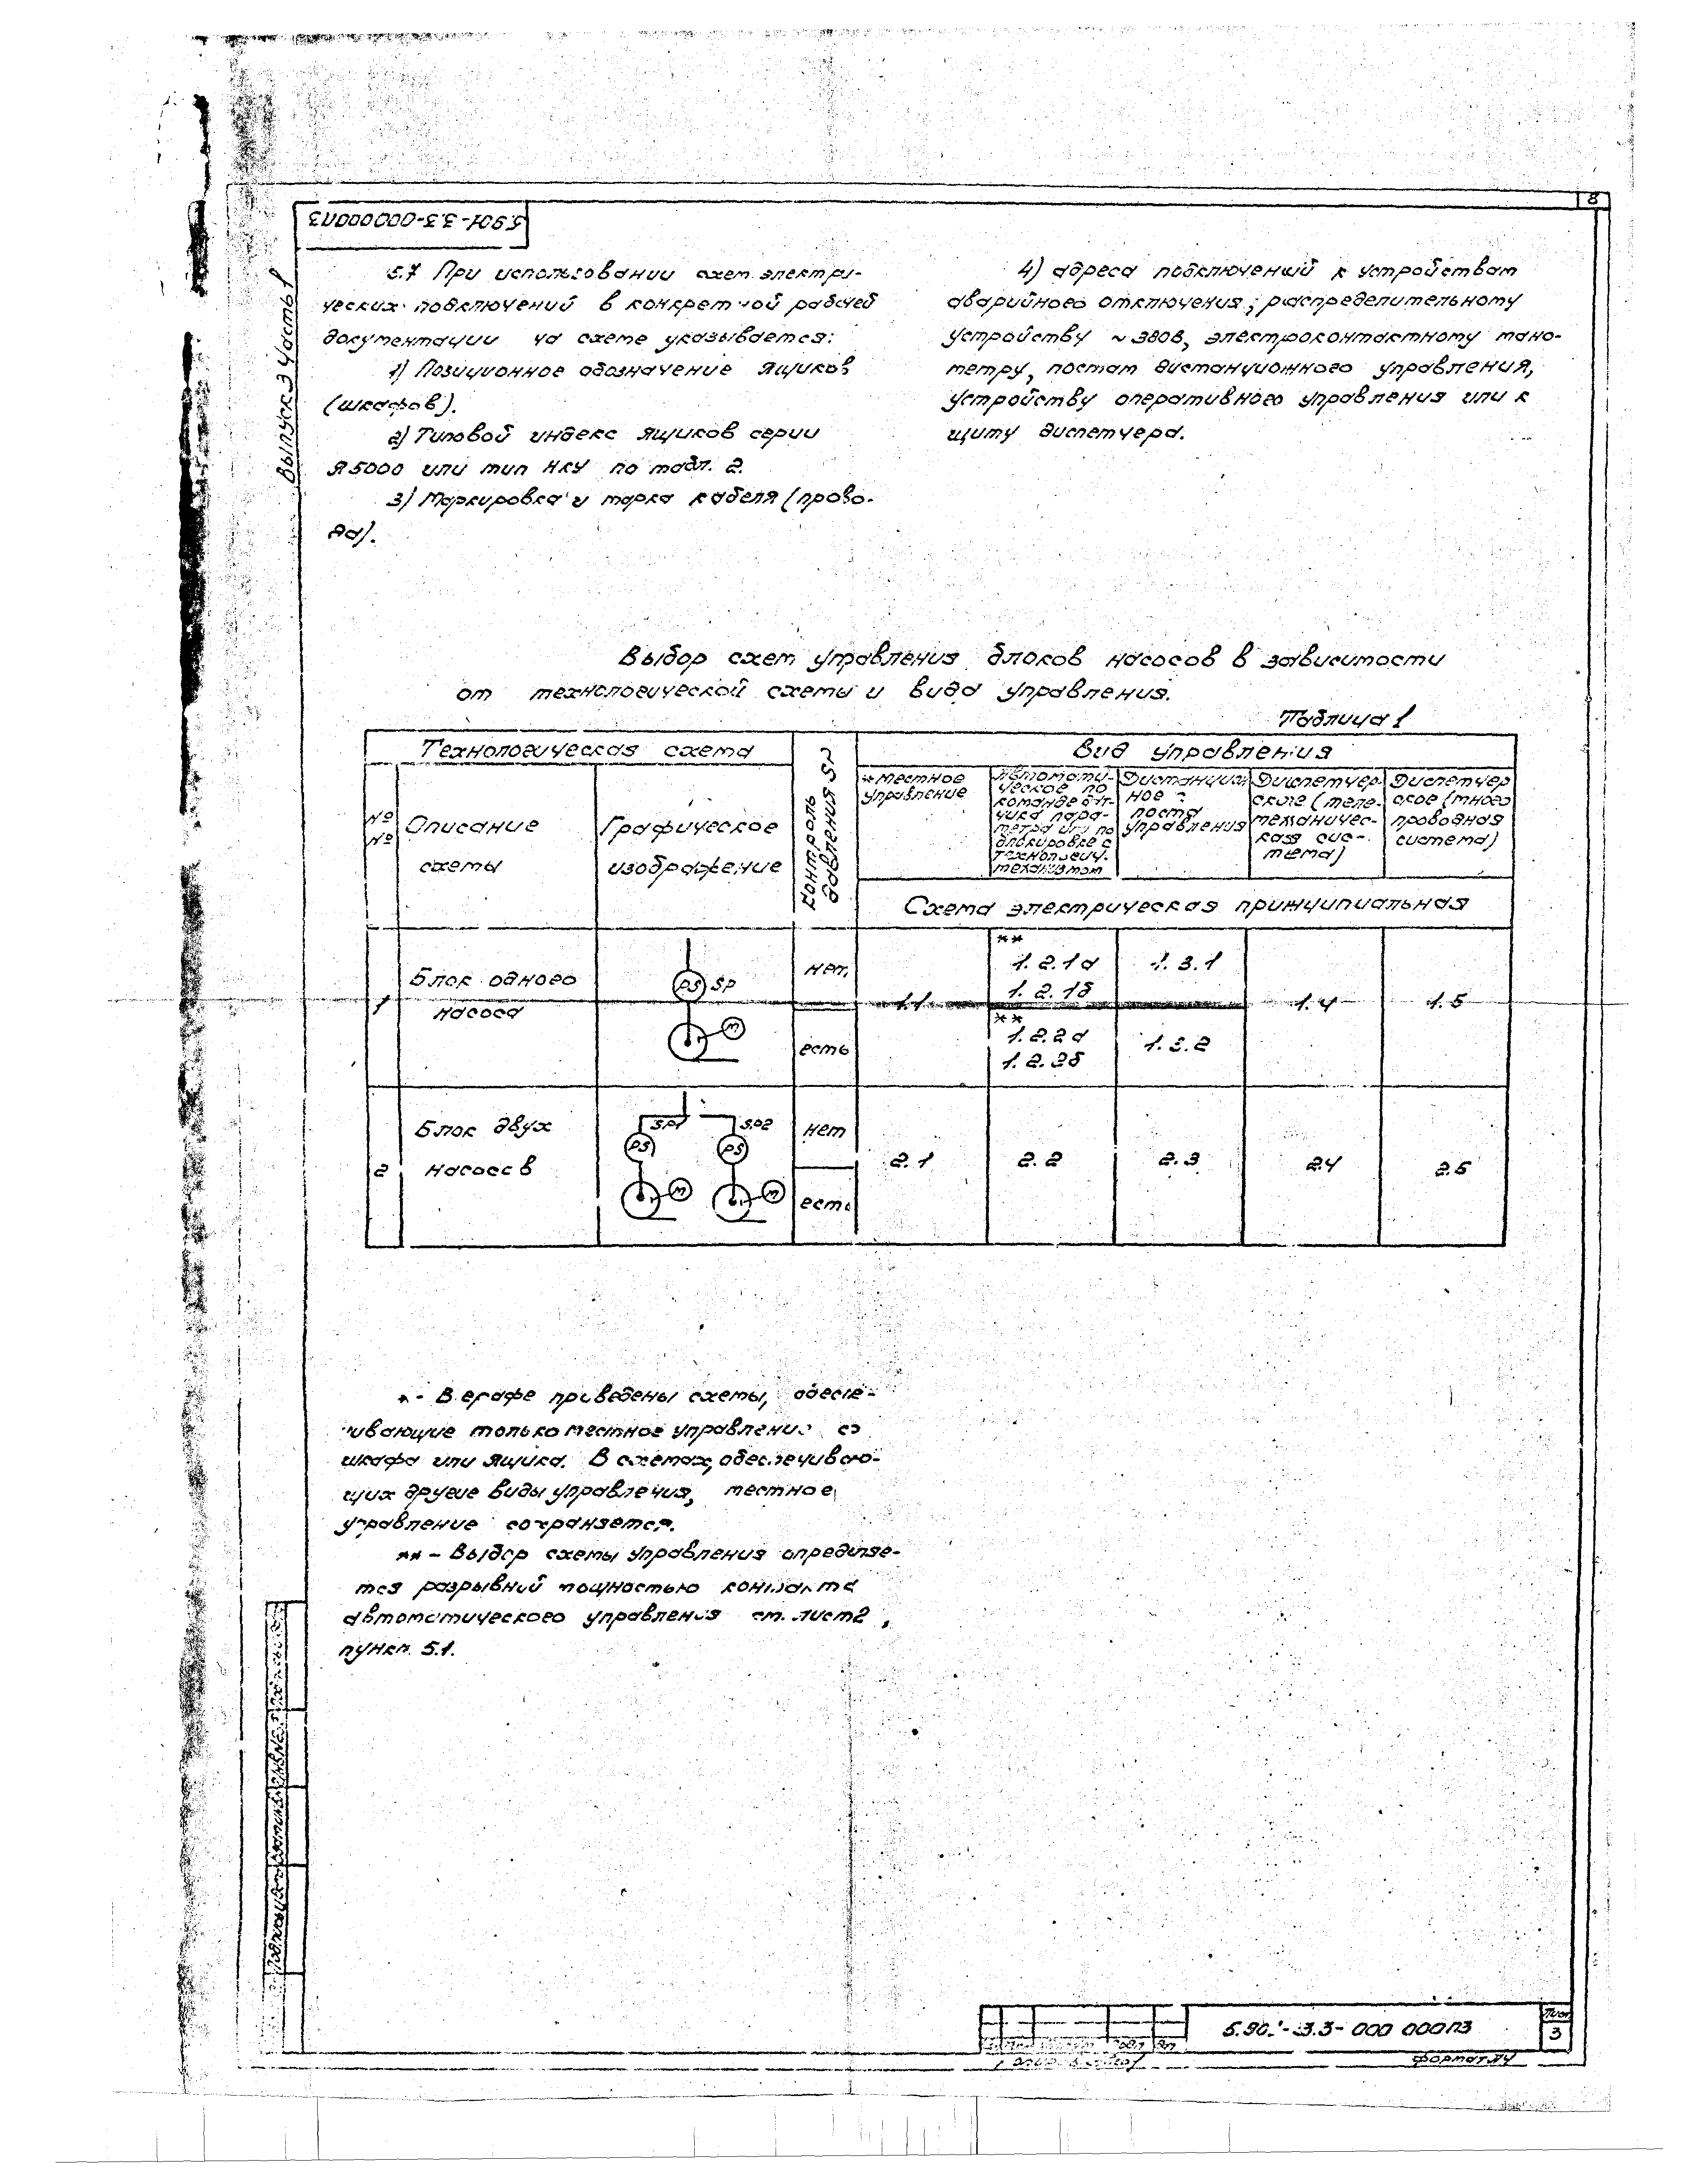 8
5.901-3.3-000000ПЗ
Выпуск 3 Часть 1
5.7 При использовании схем электри-
ческих подключений в конкретной рабочей
документации на схеме указывается:
1) Позиционное обозначение ящиков
(шкафов).
2) Типовой индекс ящиков серии
Я5000 или тип НКУ по табл. 2.
3) Маркировка и марка кабеля (прово-
да).
4) адреса подключений к устройствам
аварийного отключения, распределительному
устройству ~380в, электроконтактному мано-
метру, постам дистанционного управления,
устройству оперативного управления или к
щиту диспетчера.
Выбор схем управления блоков насосов в зависимости
от технологической схемы и вида управления.
Таблица 1
Технологическая схема
Контроль
давления SP
Вид управления
№
№
Описание
схемы
Графическое
изображение
*Местное
управление
Автомати-
ческое по
команде дат-
чика пара-
метра или по
блокировке с
технологич.
механизмом
Дистанцион
ное с
поста
управления
Диспетчер-
ское (теле-
механичес-
кая сис-
тема)
Диспетчер
ское (много
проводная
система)
Схема электрическая принципиальная
1
Блок одного
насоса
PS SP
М
нет
есть
1.1
**
1.2.1а
1.2.1б
**
1.2.2а
1.2.2б
1.3.1
1.3.2
1.4
1.5
2
Блок двух
насосов
SP1 SP2
PS PS
М М
нет
есть
2.1
2.2
2.3
2.4
2.5
* - В графе приведены схемы, обеспе-
чивающие только местное управление со
шкафа или ящика. В схемах, обеспечиваю-
щих другие виды управления, местное
управление сохраняется.
** - Выбор схемы управления определяе-
тся разрывной мощностью контакта
автоматического управления см. лист 2,
пункт 5.1.
5.901-3.3-000 000ПЗ
Лист
3
Формат А4